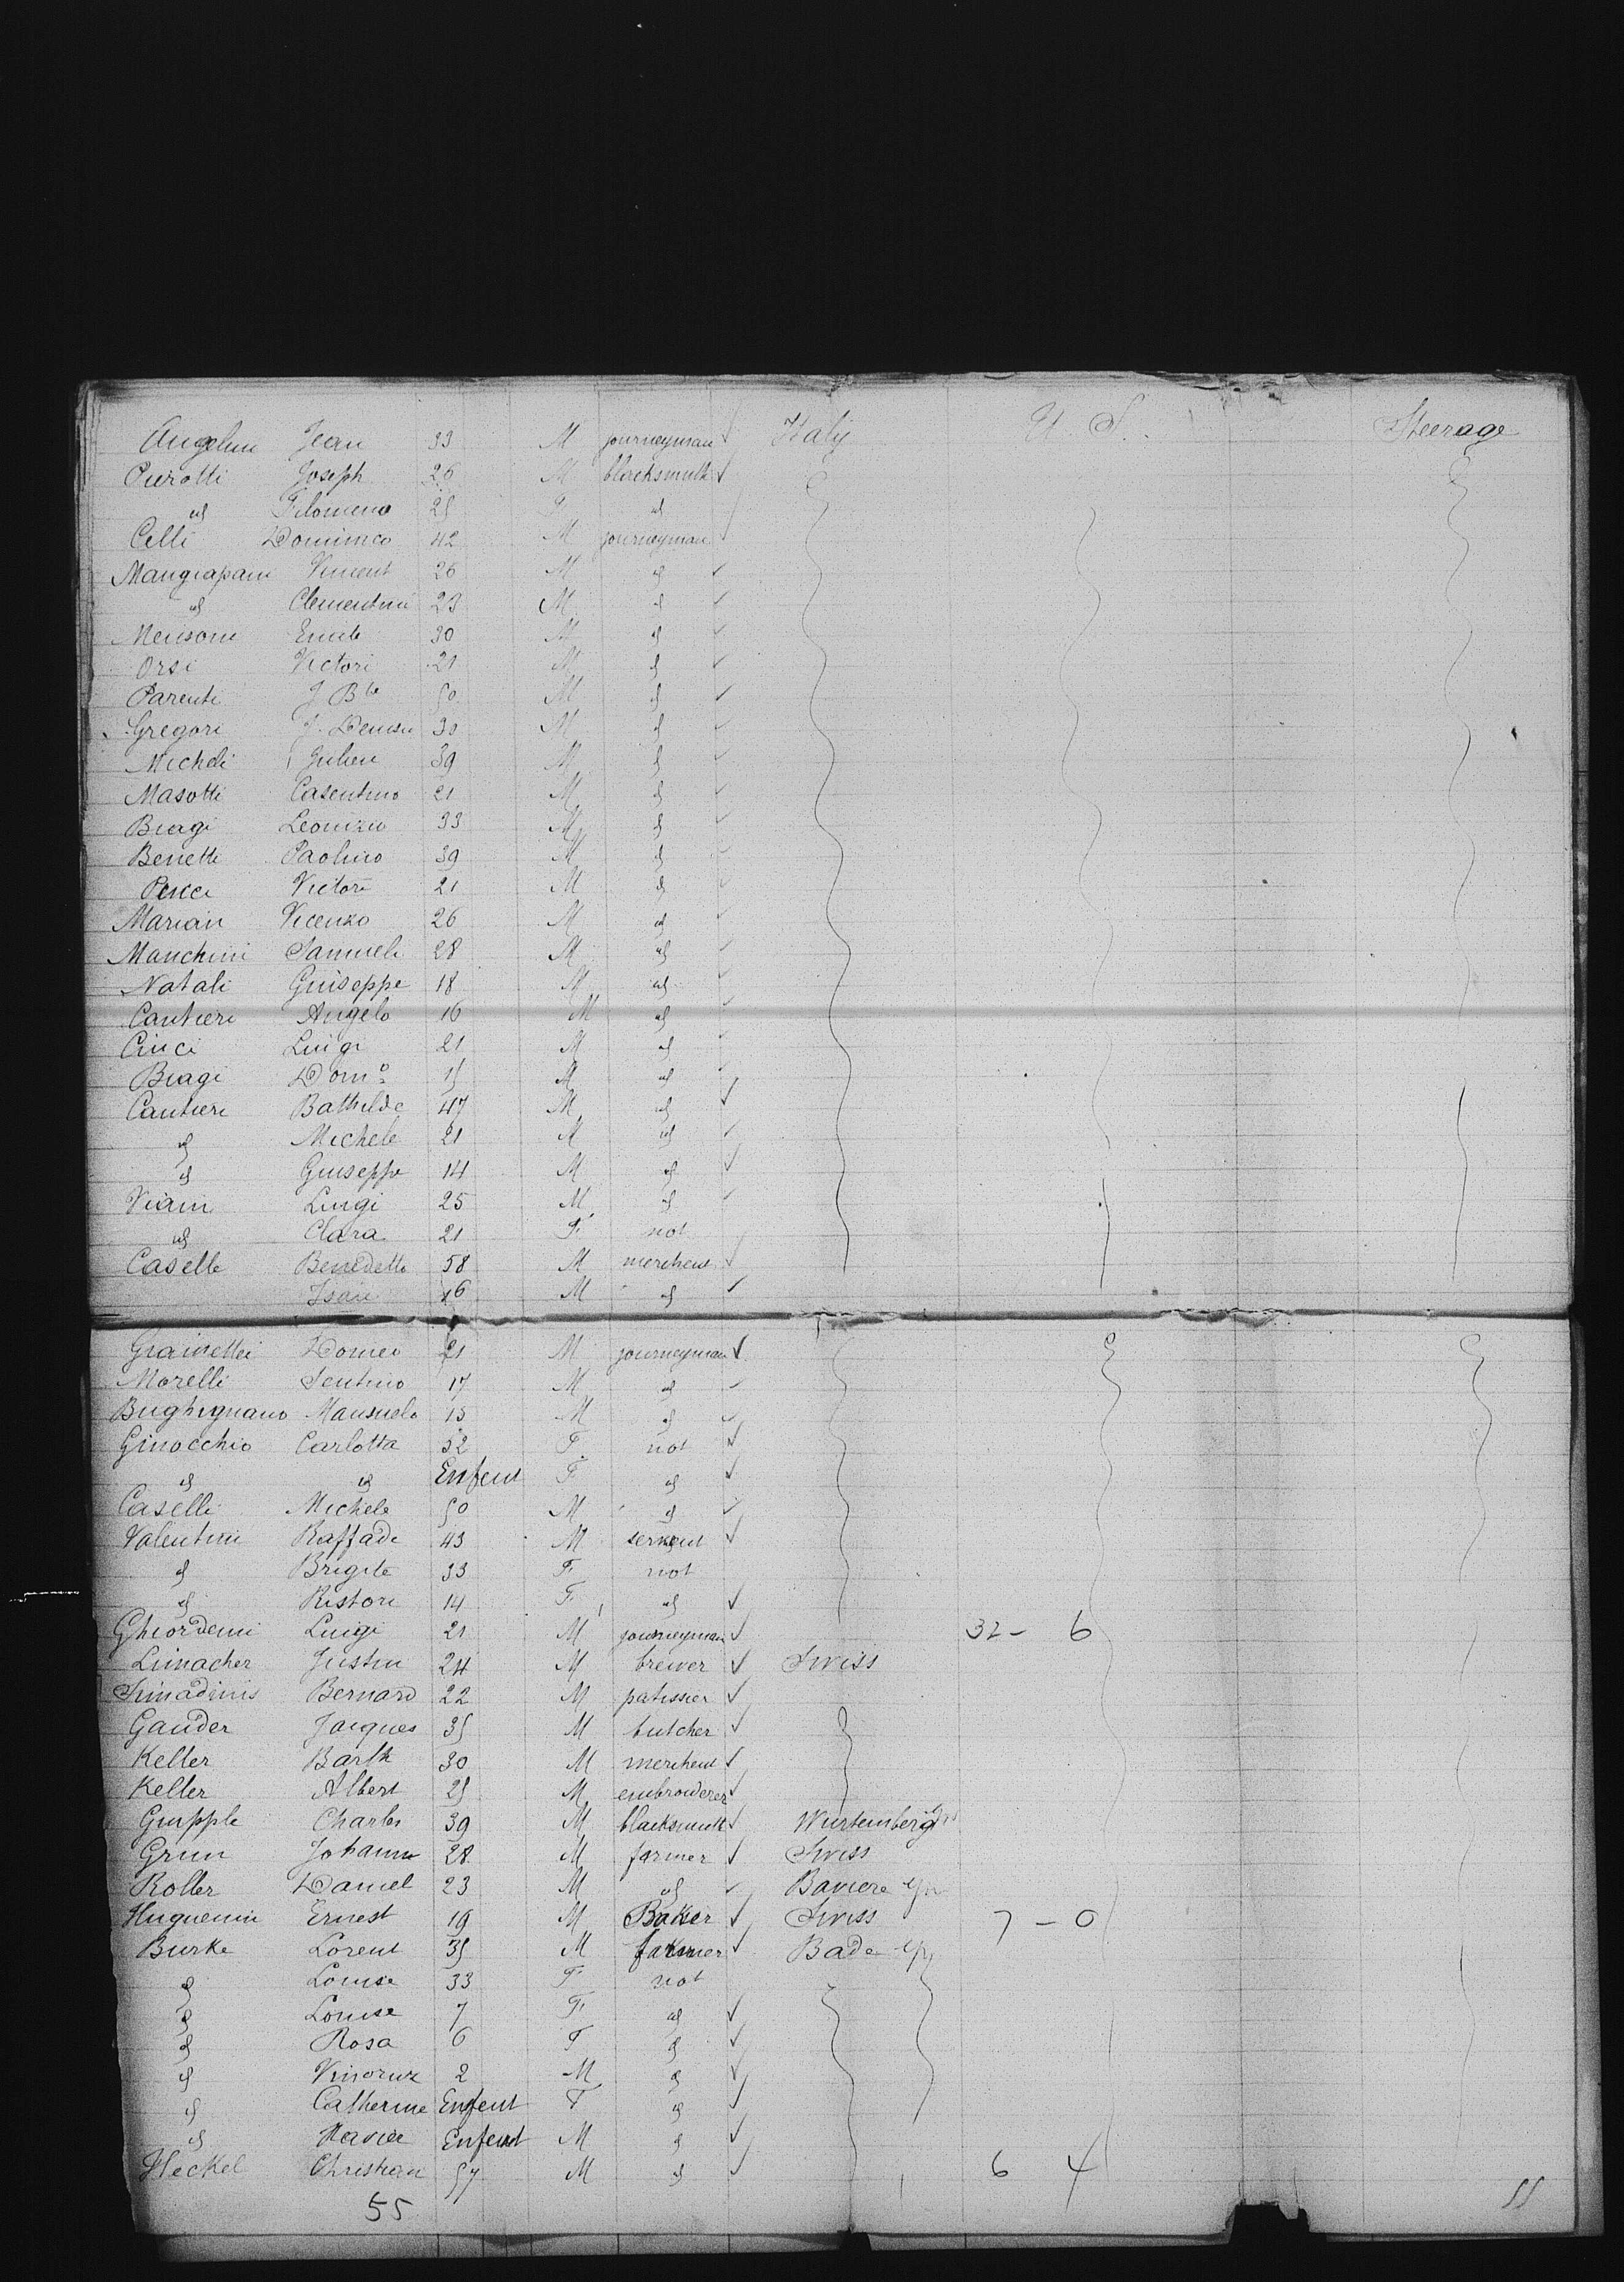 Angelini Jean 33 M journeyman Italy U. S. Steerage
Pierotti Joseph 26 M blacksmith
id Filomena 25 F id
Celli Dominico 42 M journeyman
Mangiapani Vincent 26 M id
id Clementini 23 M id
Menisoni Emile 30 M id
Orsi Victori 21 M id
Parenti J Bte 50 M id
Gregori J. 30 M id
Micheli Julien 39 M id
Masotti Casentino 21 M id
Biagi Leonizio 33 M id
Benetti Paolino 39 M id
Pescei Victori 21 M id
Mariani Vicenzo 26 M id
Manchini Samuele 28 M id
Natali Guiseppe 18 M id
Cantieri Angelo 16 M id
Cinci Luigi 21 M id
Biagi Domo 15 M id
Cantieri Bathilde 47 M id
id Michele 21 M id
id Giuseppe 14 M id
Viani Luigi 25 M id
id Clara 21 F not
Caselli Benedetto 58 M merchent
Isaie 16 M id
Domeo 21 M journeyman
Morelli Sentino 17 M id
Bughignano Mansuelo 15 M id
Ginocchio Carlotta 32 F not
id id Enfent F id
Caselli Michele 50 M id
Valentini Raffaele 43 M servent
id Brigite 33 F not
id Ristori 14 F id
Ghiordemi Luigi 21 M journeyman 32 - 6
Limacher Justin 24 M brewer Swiss
Bernard 22 M patissier
Gander Jacques 35 M butcher
Keller Barth 30 M merchent
Keller Albert 25 M embroiderer
Charles 39 M blacksmith Wurtemberg
Grun Johanne 28 M farmer Swiss
Roller Daniel 23 M id Baviere
Huguenin Ernest 19 M Baker Swiss 7 - 0
Burke Lorent 35 M farmer Bade
id Louise 33 F not
id Louise 7 F id
id Rosa 6 F id
id 2 M id
id Catherine Enfent F id
id Xavier Enfent M id
Heckel Christian 57 M id 6 4
55 55